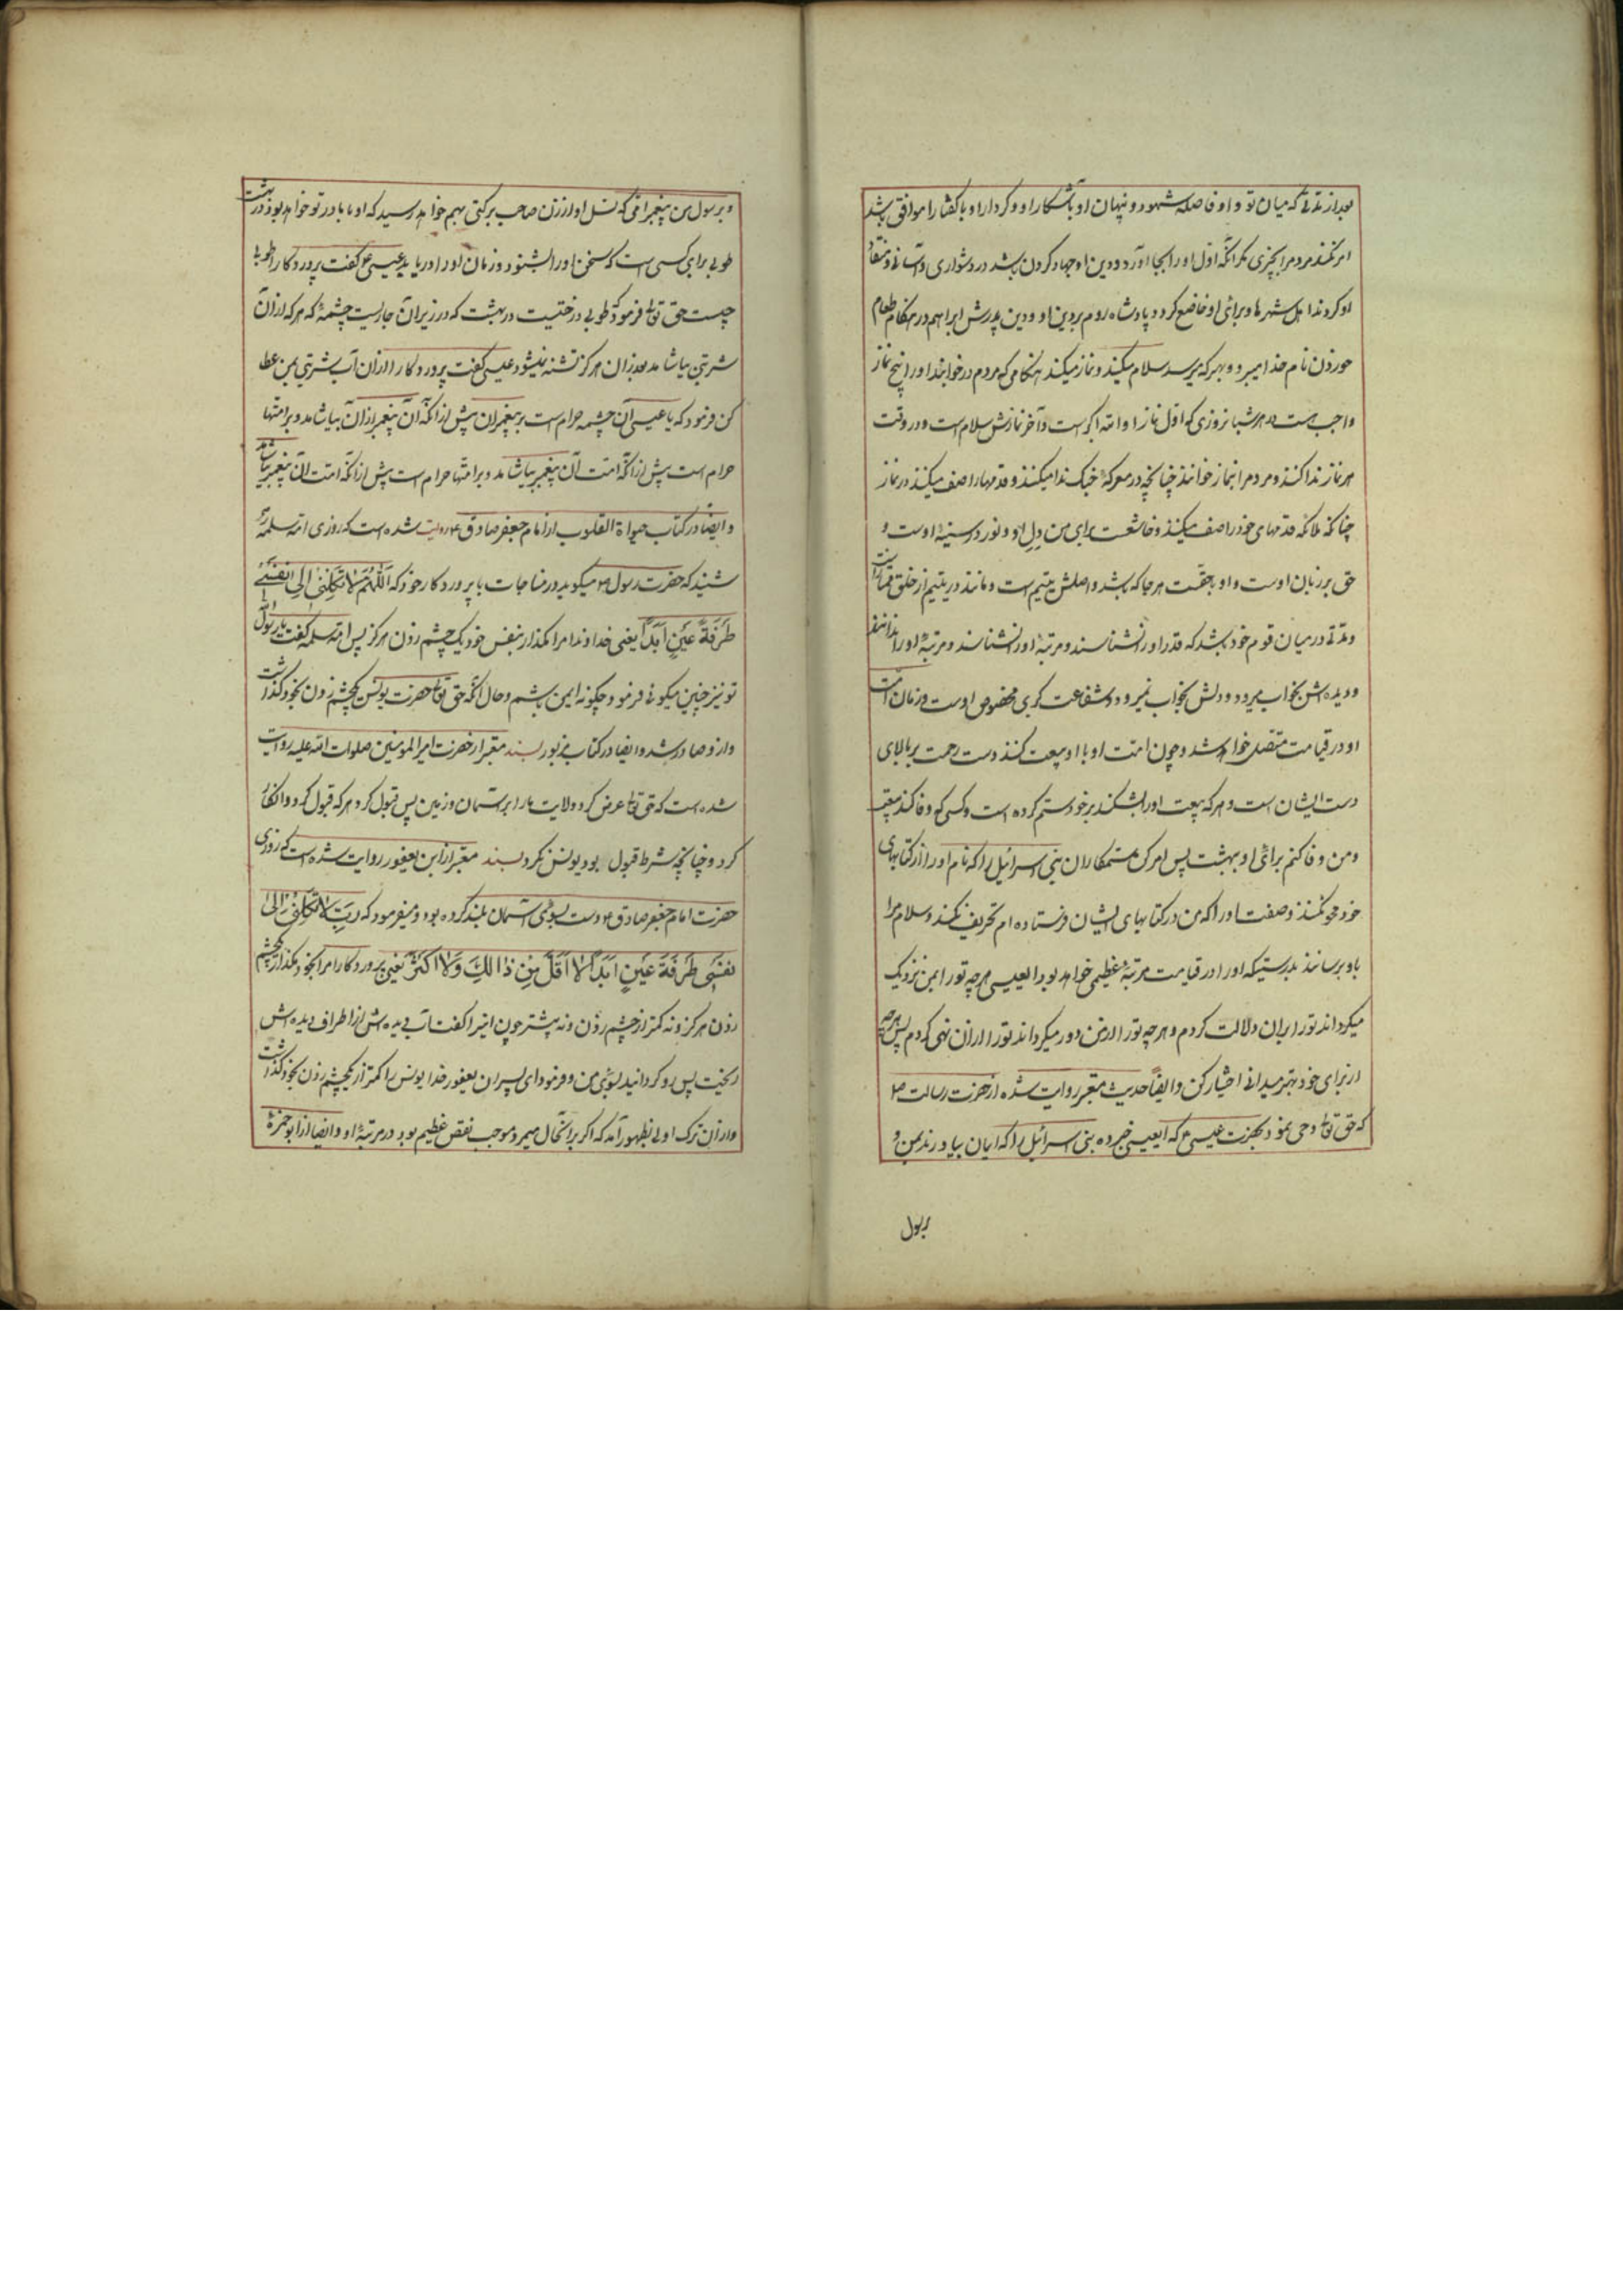 بعد از مدتی که میان تو و او فاصله شود و نهان او با آشکار او و کردار او با گفتار موافق باشد
امر نکند مردم را بچیزی مگر آنکه اول او را بجا آورد و دین او جهاد کردن باشد در دشواری و آسانی و منقاد
او گردند اهل شهرها و برای او خاضع گردد پادشاه روم بر دین او و دین پدرش ابراهیم در هنگام طعام
خوردن نام خدا میبرد و بهر که میرسد سلام میکند و نماز میکند هنگامی که مردم در خوابند او را پنج نماز
واجب است در هر شبانروزی که اول نماز او الله اکبر است و آخر نمازش سلام است و در وقت
هر نماز ندا کنند و مردم را بنماز خوانند چنانچه در معرکهٔ جنگ ندا میکنند و قدمها را صف میکنند در نماز
چنانکه ملائکه قدمهای خود را صف میکنند و خاشعست برای من دل او و نور در سینهٔ اوست و
حق بر زبان اوست و او بحقست هر جا که باشد و اصلش یتیم است و مانند در یتیم از خلق ممتاز است
و مدتی در میان قوم خود باشد که قدر او را نشناسند و مرتبهٔ او را نشناسند و مرتبهٔ او را ندانند
و دیده اش بخواب میرود و دلش بخواب نمیرود و شفاعت کبری مخصوص اوست و زمان امت
او در قیامت متصل خواهد شد و چون امت او با او بیعت کنند دست رحمت بر بالای
دست ایشان است و هر که بیعت او را بشکند بر خود ستم کرده است و کسی که وفا کند ببیعت
و من وفا کنم برای او بهشت پس امر کن ستمکاران بنی اسرائیل را که نام او را از کتابهای
خود محو نکنند و صفت او را که من در کتابهای ایشان فرستاده ام تحریف نکنند و سلام مرا
باو برسانند بدرستیکه او را در قیامت مرتبهٔ عظیمی خواهد بود ای عیسی هر چه تو را بمن نزدیک
میگرداند تو را بر آن دلالت کردم و هر چه تو را از من دور میگرداند تو را از آن نهی کردم پس هر چه
از برای خود بهتر میدانی اختیار کن و ایضاً حدیث معتبر روایت شده از حضرت رسالت ص
که حق تعالی وحی نمود بحضرت عیسی ع که ای عیسی خبر ده بنی اسرائیل را که ایمان بیاورند بمن و
برسول
و برسول من پیغمبر امی که نسل او از زن صاحب برکتی بهم خواهد رسید که او با مادر تو خواهد بود در بهشت
طوبی برای کسی است که سخن او را بشنود و زمان او را دریابد عیسی ع گفت پروردگارا طوبا
چیست حق تعالی فرمود که طوبی درختیست در بهشت که در زیر آن جاریست چشمهٔ که هر که از آن
شربتی بیاشامد بعد از آن هرگز تشنه نمیشود عیسی گفت پروردگارا از آن آب شربتی بمن عطا
کن فرمود که یا عیسی آن چشمه حرام است بر پیغمبران پیش از آنکه آن پیغمبر از آن بیاشامد و بر امتها
حرام است پیش از آنکه امت آن پیغمبر بیاشامد و بر امتها حرام است پیش از آنکه امت آن پیغمبر بیاشامد
و ایضا در کتاب حیواة القلوب از امام جعفر صادق ع روایت شده است که روزی ام سلمه رض
شنید که حضرت رسول ص میگوید در مناجات با پروردگار خود که اَللّٰهُمَّ لا تَکِلْنی اِلیٰ نَفْسی
طَرْفَةَ عَیْنٍ اَبَداً یعنی خداوندا مرا مگذار بنفس خود یک چشم زدن هرگز پس ام سلمه گفت یا رسول
تو نیز چنین میگوئی فرمود چگونه ایمن باشم و حال آنکه حق تعالی حضرت یونس یکچشم زدن بخود گذاشت
و از او صادر شد و ایضا در کتاب مزبور بسند معتبر از حضرت امیر المومنین صلوات الله علیه روایت
شده است که حق تعالی عرض کرد ولایت ما را بر آسمان و زمین پس قبول کرد هر که قبول کرد و انکار
کرد و چنانچه شرط قبول بود یونس نکرد بسند معتبر از ابن یعفور روایت شده است که روزی
حضرت امام جعفر صادق ع دست بسوی آسمان بلند کرده بود و میفرمود که رَبِّ لا تَکِلْنی اِلیٰ
نَفْسی طَرْفَةَ عَیْنٍ اَبَداً لا اَقَلَّ مِنْ ذالِكَ وَلا اَکْثَرَ یعنی پروردگارا مرا بخود مگذار یکچشم
زدن هرگز و نه کمتر از چشم زدن و نه بیشتر چون این را گفت آب دیده اش از اطراف دیده اش
ریخت پس رو گردانید بسوی من و فرمود ای پسر ابن یعفور خدا یونس را کمتر از یکچشم زدن بخود گذاشت
و از آن ترک اولی بظهور آمد که اگر بر آنحال میمرد موجب نقص عظیم بود در مرتبهٔ او و ایضا از ابو حمزهٔ